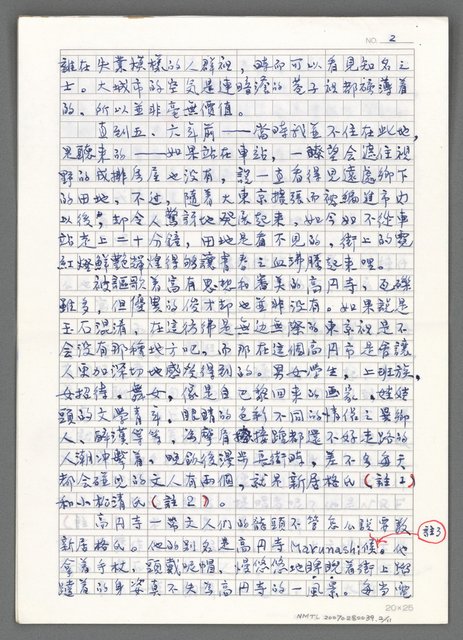 NO. 2
誰在失業模樣的人群裡，時而可以看見知名之
士。大城市的空氣是連暗澹的巷子裡都瀰漫着
的，所以並非毫無價值。
直到五、六年前——當時我並不住在此地，
是聽來的——如果站在車站，一瞭望會遮住視
野的成排房屋也沒有，說一直看得見遠處鄉下
的田地，不过，隨着大東京擴張而被編進市內
以後，却令人驚訝地發展起來，如今如不從車
站走上二十分鐘，田地是看不見的，街上的霓
紅燈鮮艷輝煌得够讓青春之血沸騰起來哩。
被謳歌着富有思想和善美的高円寺，瓦礫
雖多，但優異的俊才却也並非沒有。如果說是
玉石混淆，在這彷彿是無边無際的東京裡是不
会沒有那種地方吧，而那在這個高円市是會讓
人更加深切地感覺得到的。男女學生，上班族，
女招待，舞女，像是自巴黎回來的画家，娃娃
頭的文學青年，眼睛的色彩不同的情侶之異鄉
人、醉漢等等，
人潮冲擊着，晚飯後漫步長街時，差不多每天
都会碰見的文人有兩個，就是新居格氏(註1)
和小松清氏(註2)。
高円寺一帶文人們的龍頭不管怎么說要數
新居格氏。他的別名是高円寺Marunashi候。他
註3
拿着手杖，頭戴呢帽，悠悠地睥睨着街上踯
躅着的身姿真不失為高円寺的一風景。每当電
20×25
NMTL 20070280039 2/11